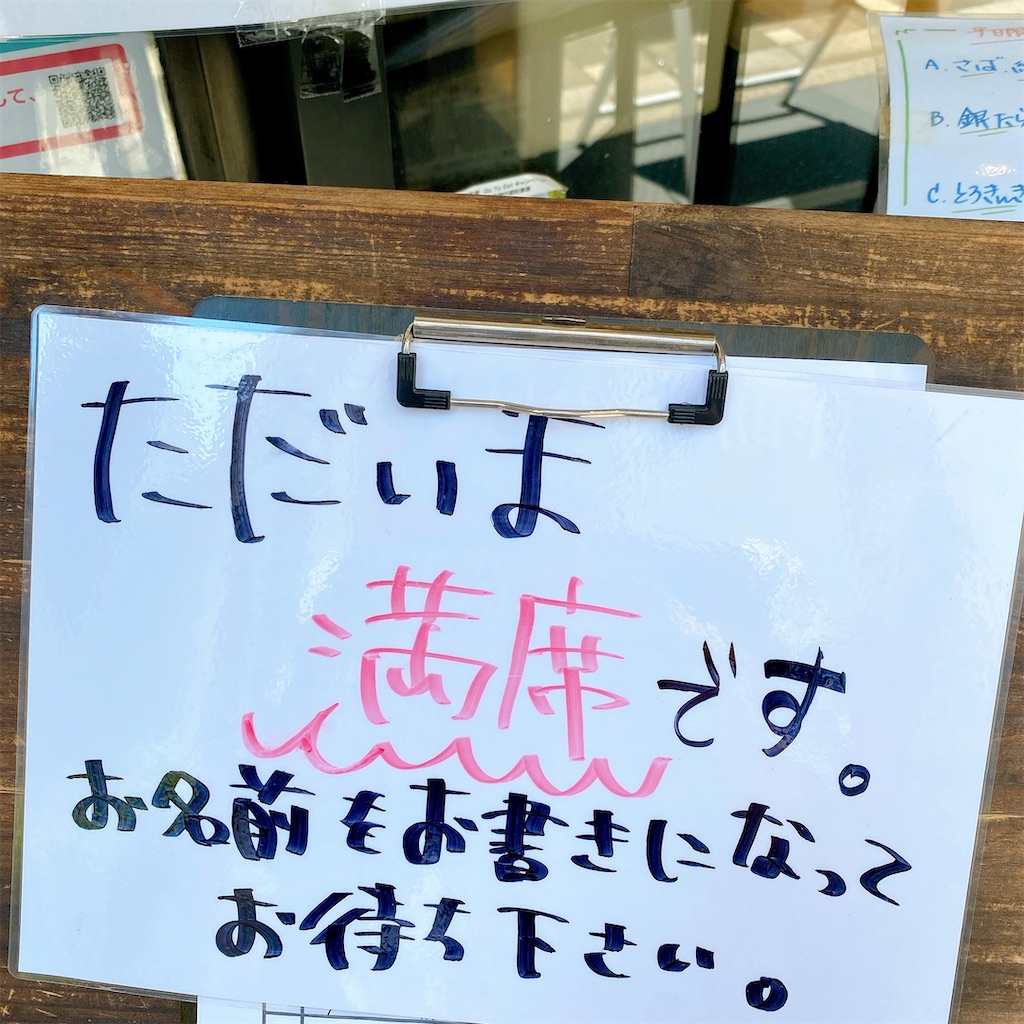 して、
Go To Eat キャン
平日限
A. さば.
B. 銀たら
C. とろさんき
ただいま
満席です。
お名前をお書きになって
お待ち下さい。